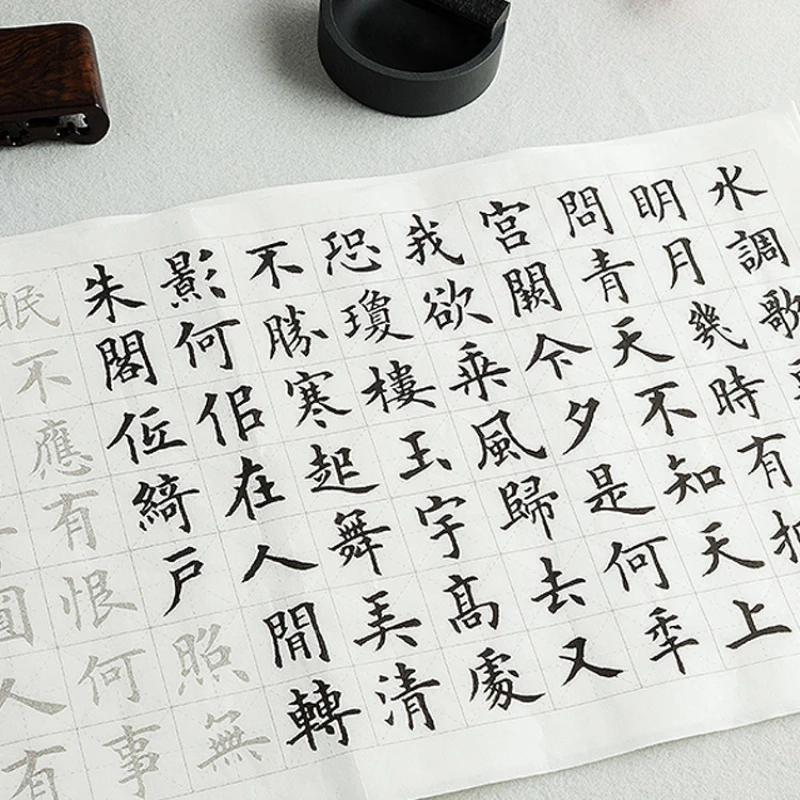 水調歌
明月幾時有
問青天不知天上
宮闕今夕是何秊
我欲乘風歸去又
恐瓊樓玉宇高處
不勝寒起舞弄清
影何佀在人間轉
朱閣低綺戶照無
眠不應有恨何事
圓人有